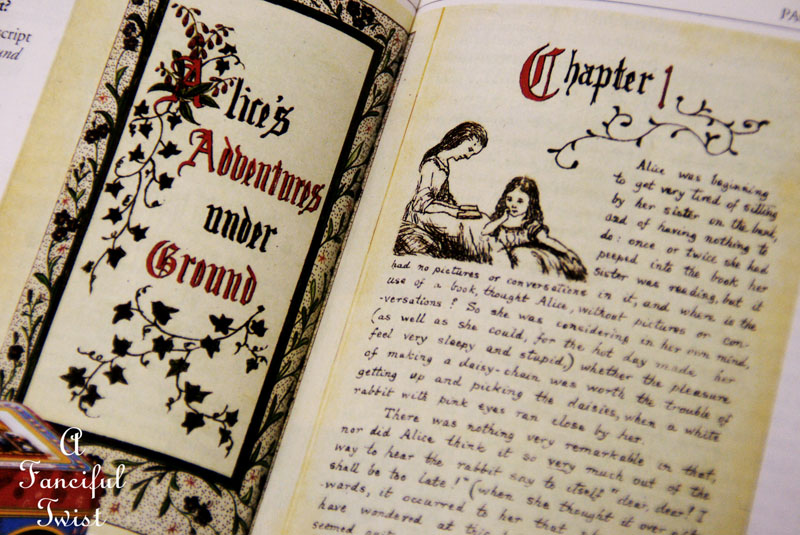 script
und
Alice's
Adventures
under
Ground
A
Fanciful
Twist
PA
Chapter 1
Alice was beginning
to get very tired of sitting
by her sister on the bank,
and of having nothing to
do: once or twice she had
peeped into the book her
sister was reading, but it
had no pictures or conversations in it, and where is the
use of a book, thought Alice, without pictures or con-
-versations? So she was considering in her own mind,
(as well as she could, for the hot day made her
feel very sleepy and stupid,) whether the pleasure
of making a daisy-chain was worth the trouble of
getting up and picking the daisies, when a white
rabbit with pink eyes ran close by her.
There was nothing very remarkable in that,
nor did Alice think it so very much out of the
way to hear the rabbit say to itself "dear, dear! I
shall be too late!" (when she thought it over
-wards, it occurred to her that
have wondered at this
seemed